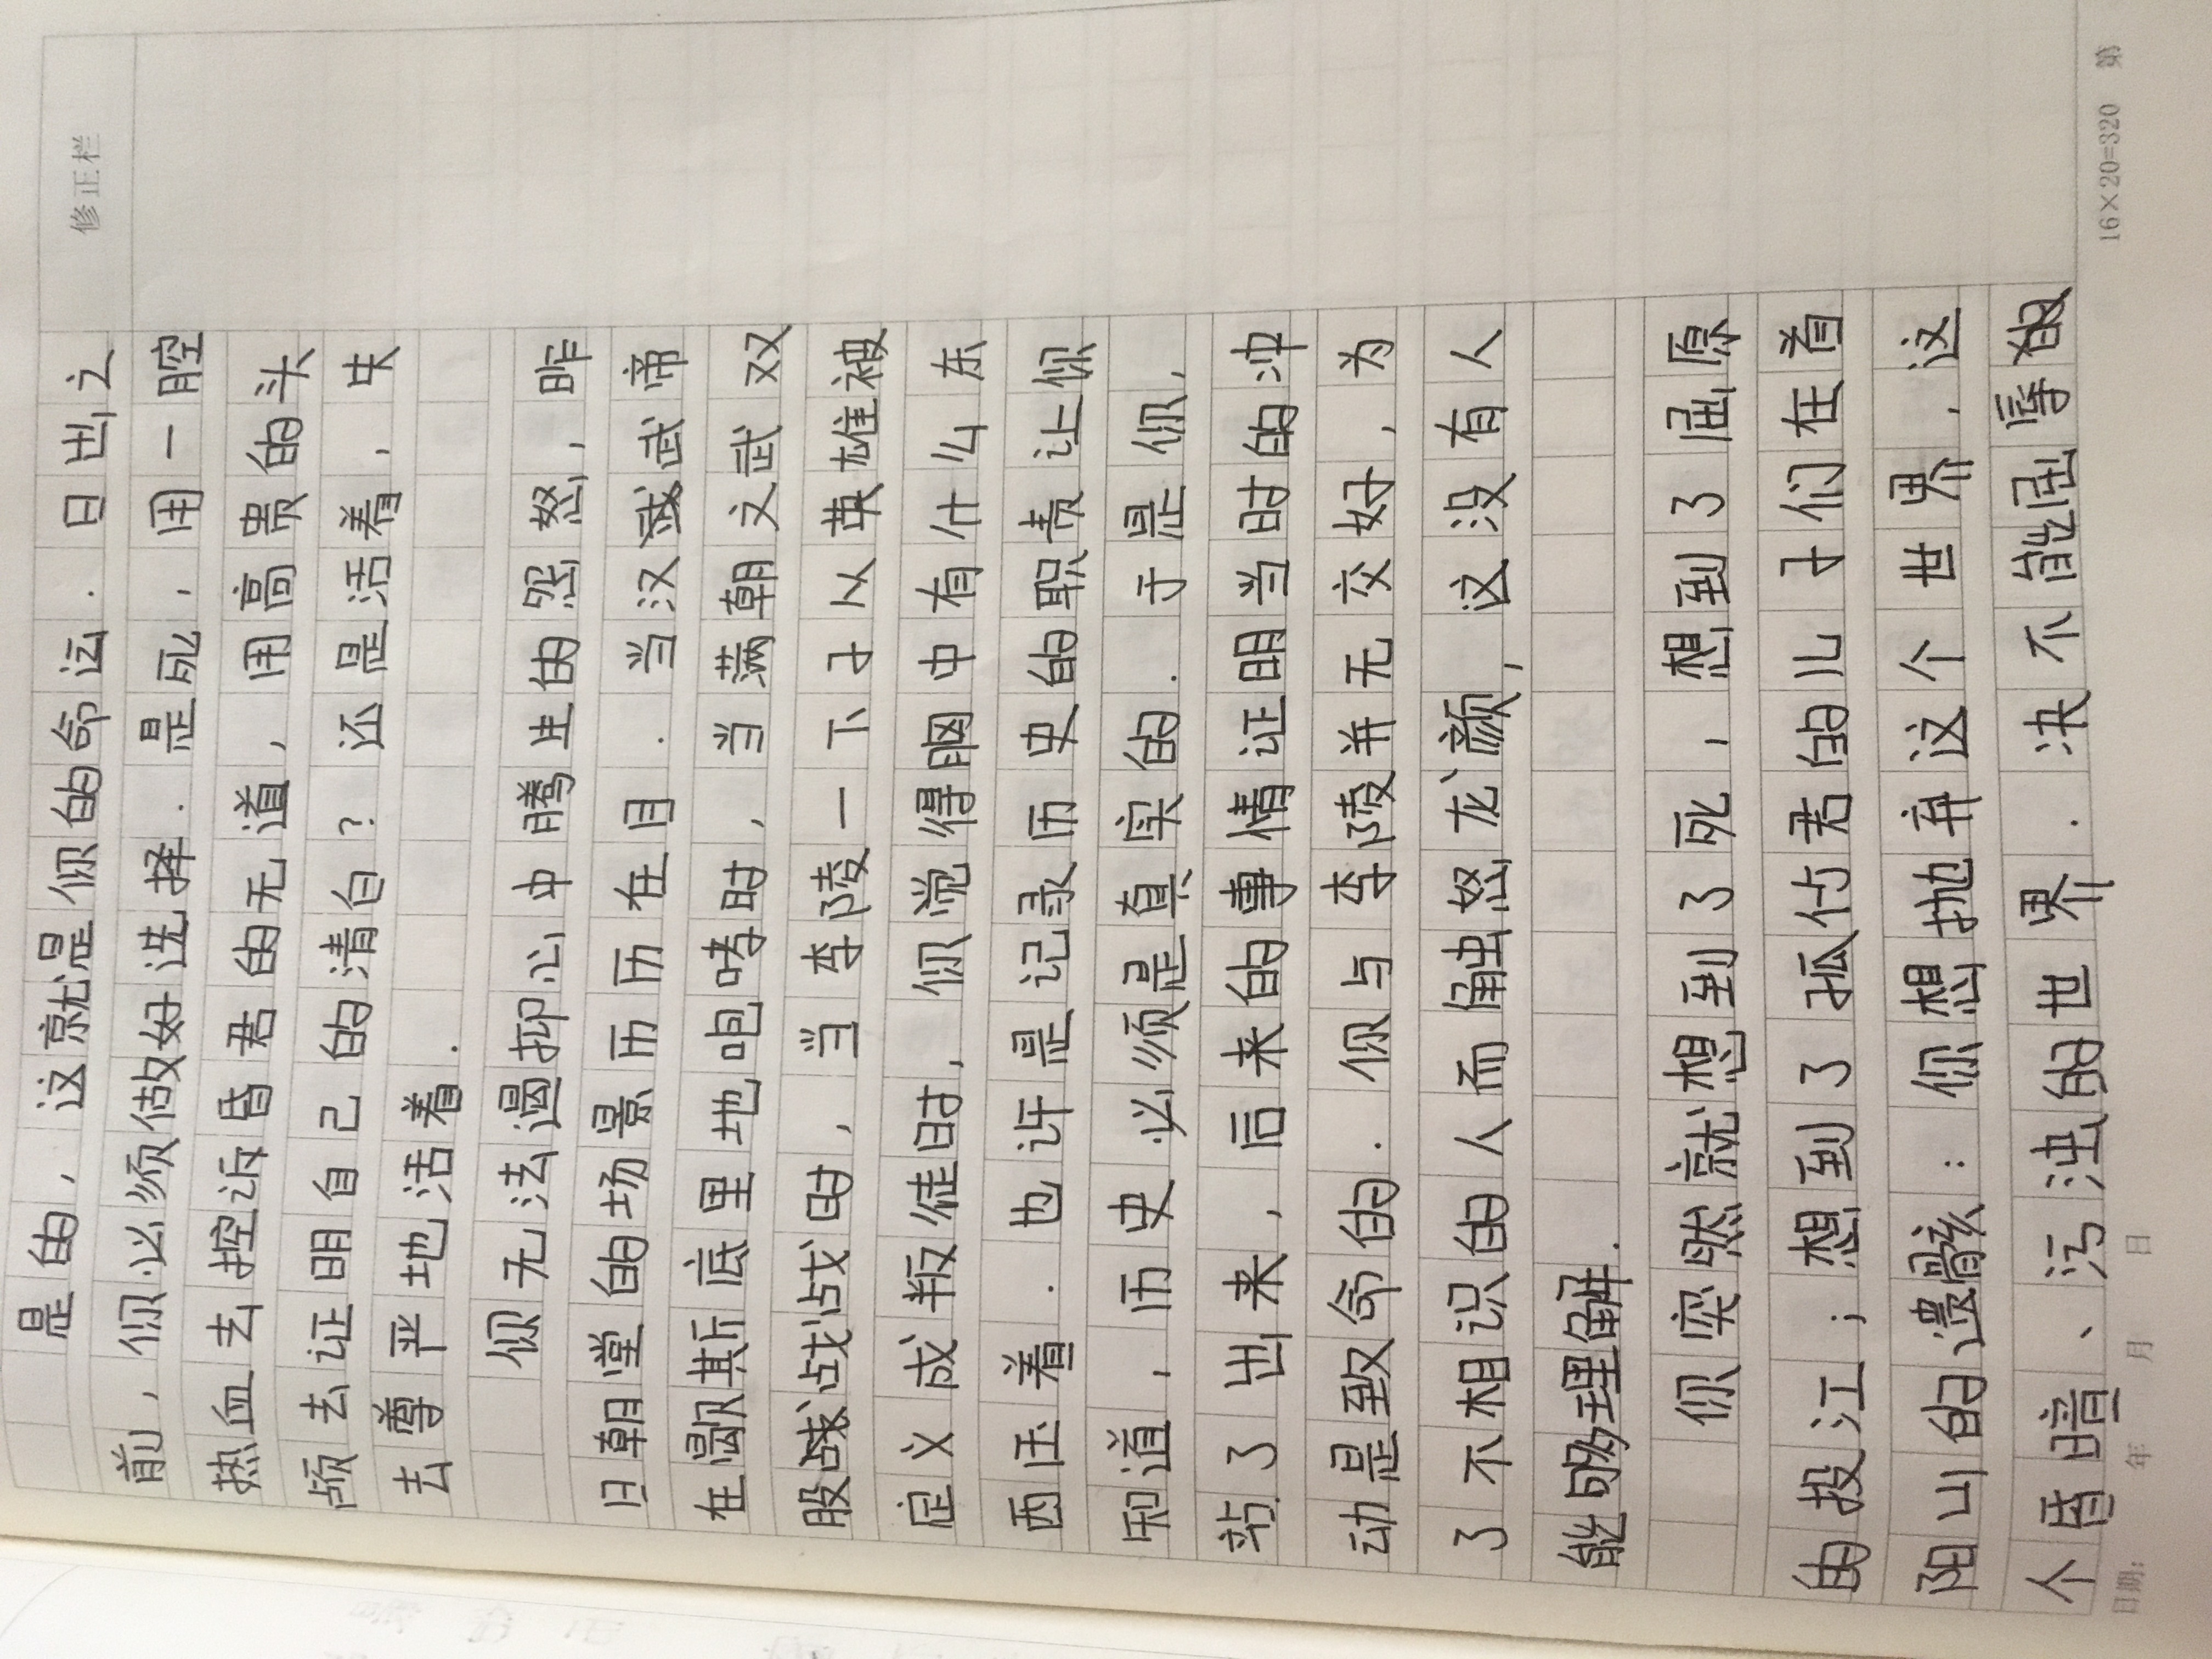 修正栏
是的，这就是你的命运．日出之
前，你必须做好选择．是死，用一腔
热血去控诉昏君的无道，用高贵的头
颅去证明自己的清白？还是活着，失
去尊严地活着．
你无法遏抑心中腾生的怨怒，昨
日朝堂的场景历历在目．当汉武帝
在歇斯底里地咆哮时，当满朝文武双
股战战时，当李陵一下子从英雄被
定义成叛徒时，你觉得胸中有什么东
西压着．也许是记录历史的职责让你
知道，历史必须是真实的．于是你，
站了出来，后来的事情证明当时的冲
动是致命的．你与李陵并无交好，为
了不相识的人而触怒龙颜，这没有人
能够理解．
你突然就想到了死，想到了屈原
的投江；想到了孤竹君的儿子们在首
阳山的遗骸：你想抛弃这个世界，这
个昏暗、污浊的世界．决不能屈辱的
日期： 年 月 日 16×20=320 第